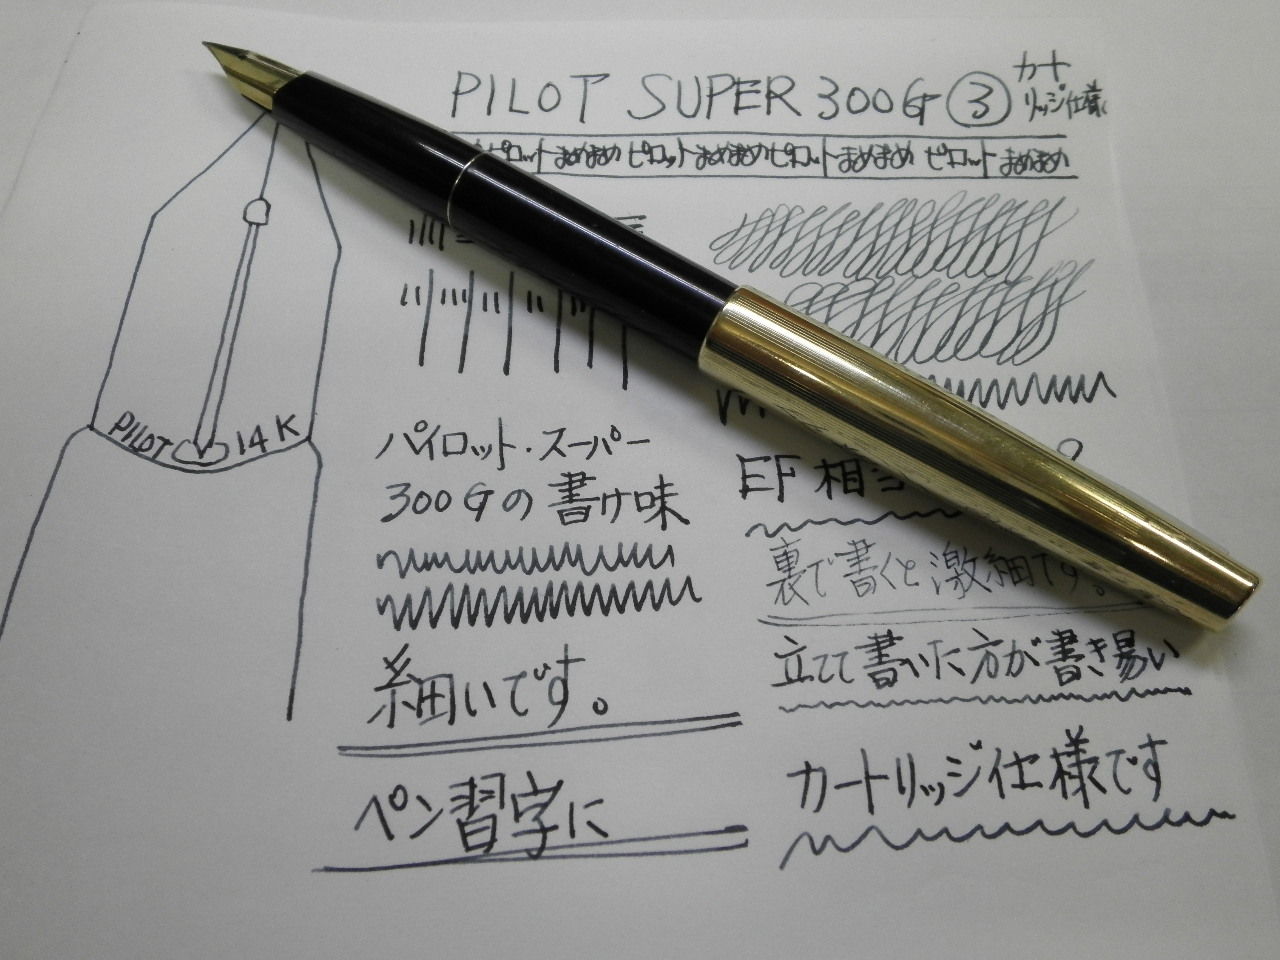 PILOT SUPER 300G ③ カート
リッジ仕様
ピロット まめまめ ピロット まめまめ ピロット まめまめ ピロット まめまめ
PILOT 14K
パイロット・スーパー
300Gの書け味
細いです。
ペン習字に
EF相
裏で書くと激細です。
立てて書いた方が書き易い
カートリッジ仕様です